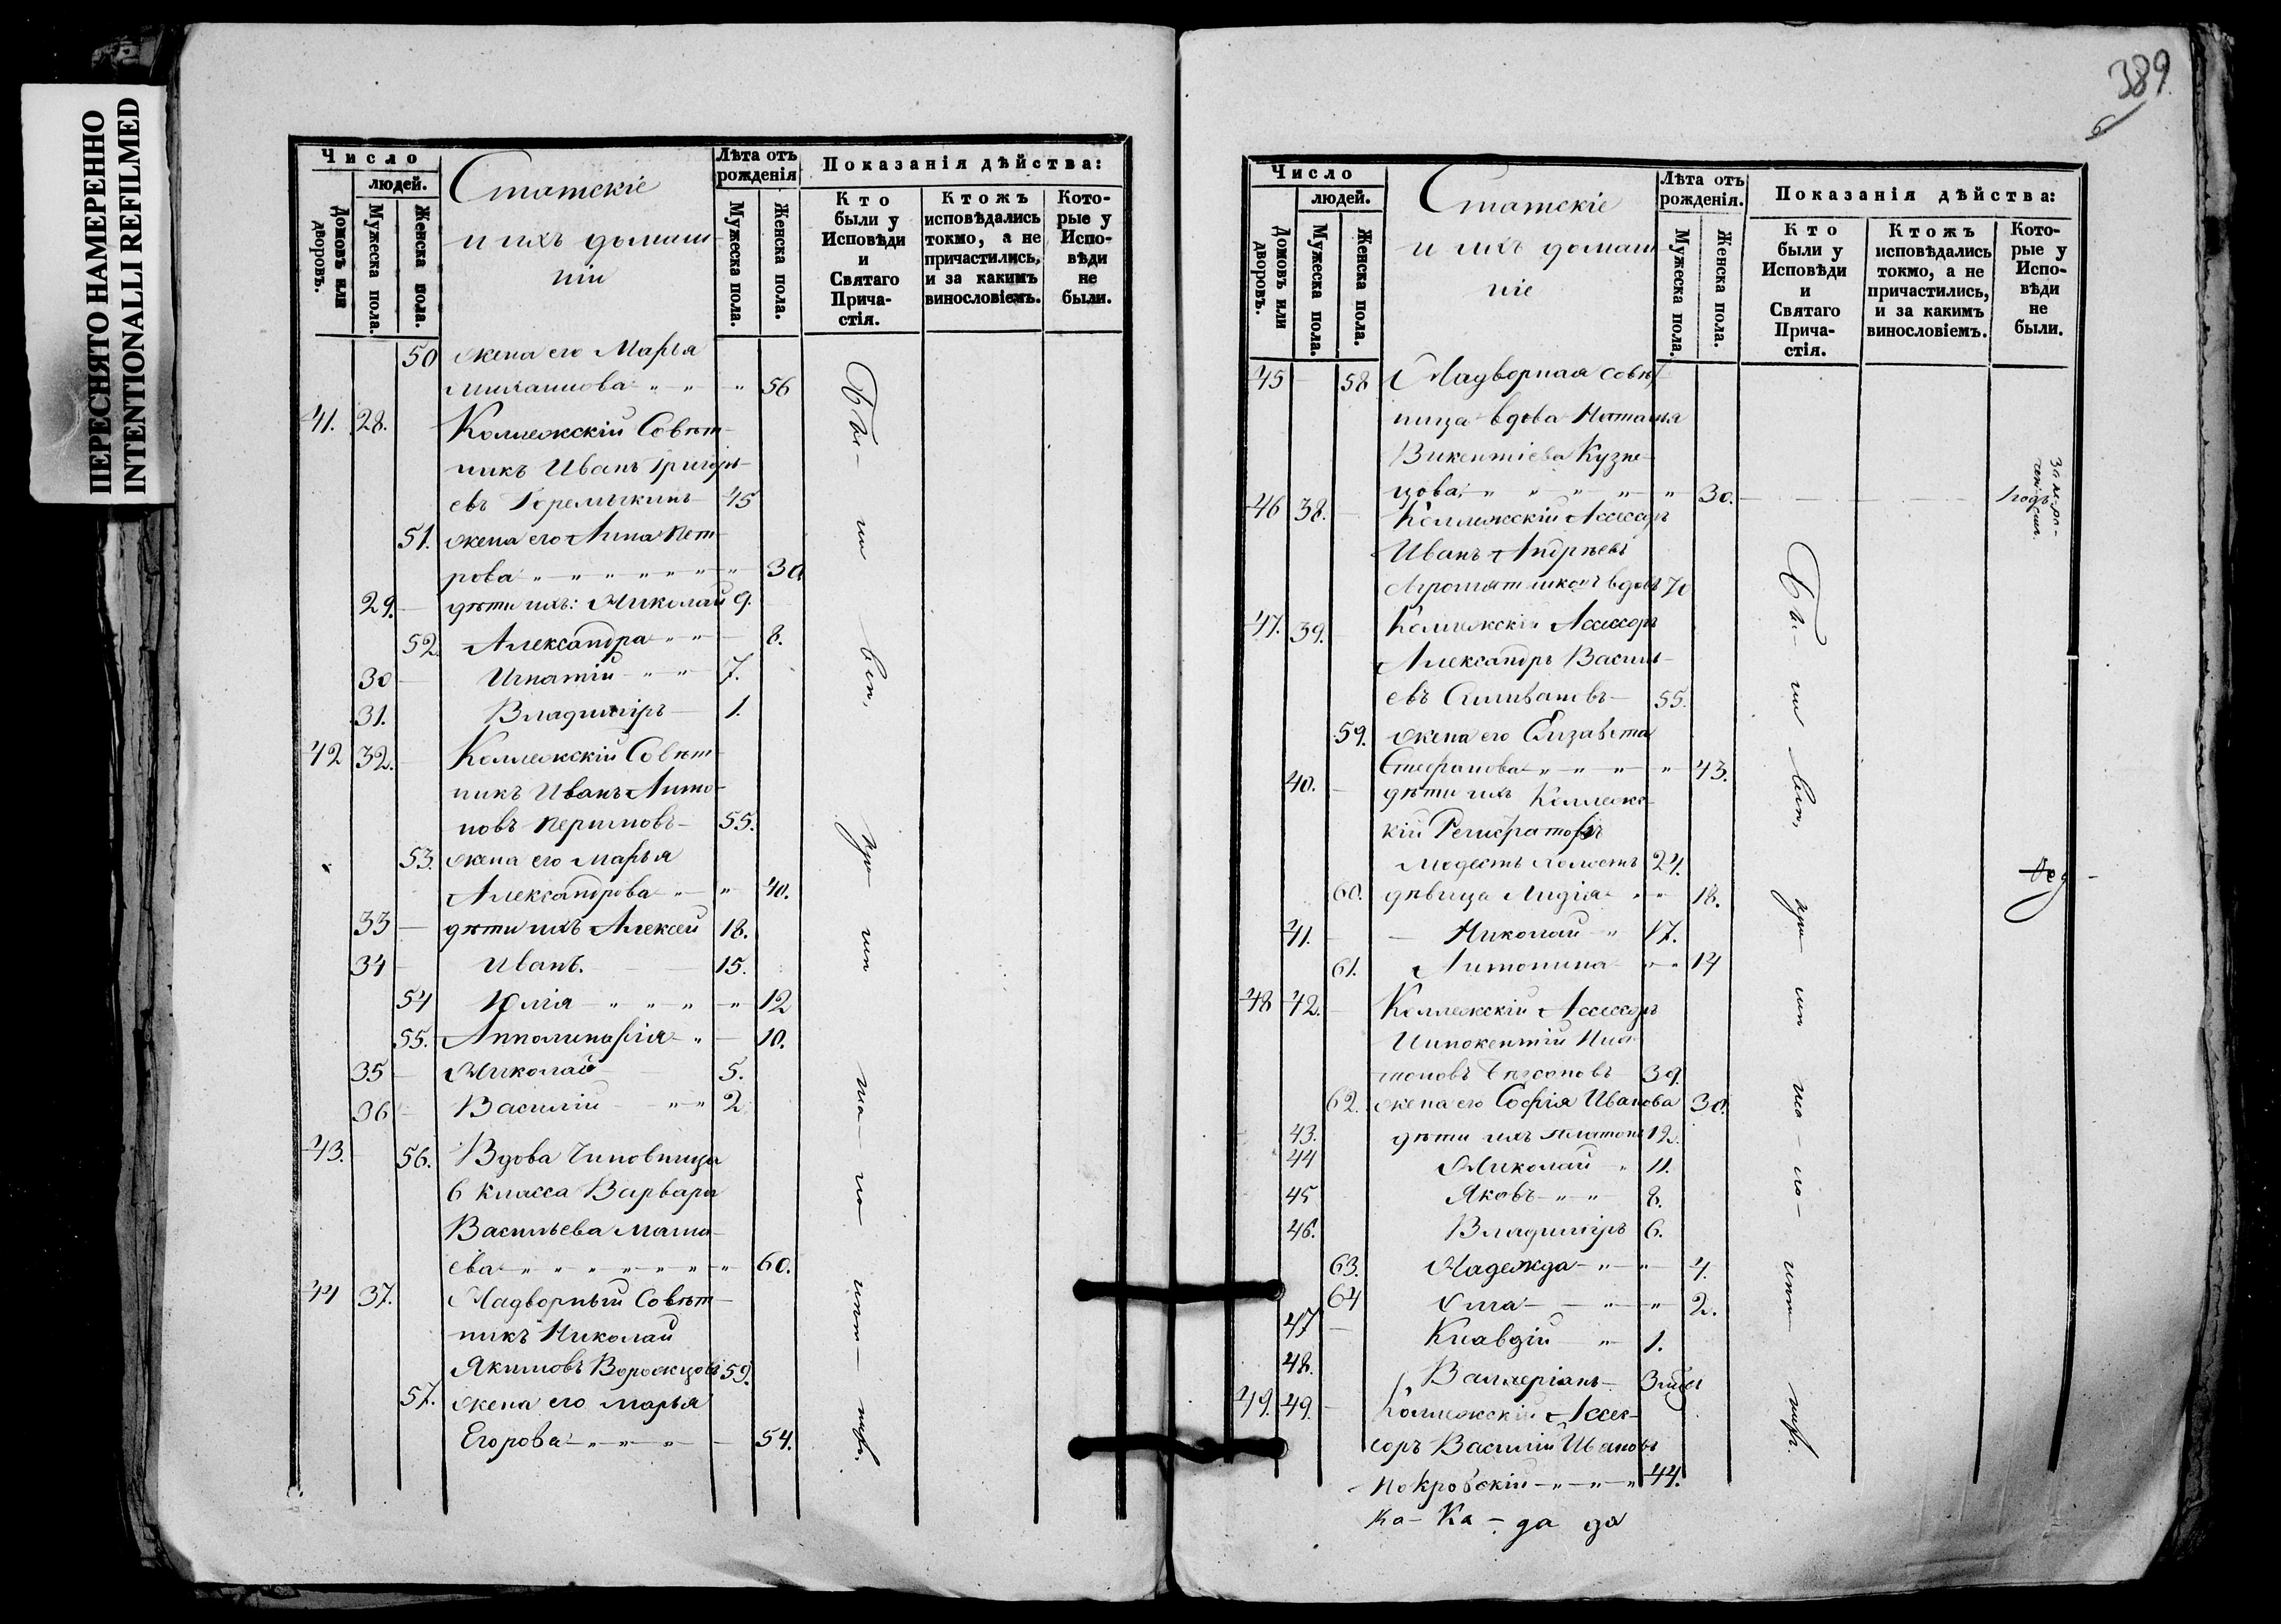 ПЕРЕСНЯТО НАМЕРЕННО
INTENTIONALLI REFILMED
Число
людей.
Домовъ или дворовъ.
Мужеска пола.
Женска пола.
Статскіе
и ихъ домаш-
ніи
Лѣта отъ рожденія
Мужеска пола.
Женска пола.
Показанія дѣйства:
Кто были у Исповѣди и Святаго Прича-стія.
Ктожъ исповѣдались токмо, а не причастились, и за какимъ винословіемъ.
Кото-рые у Испо-вѣди не были.
50 жена его Марья
„ „ „ 56
41. 28. Коллежскій Совѣт-
никъ Иванъ Григорь-
евъ Горемыкинъ 45
51. жена его Анна Пет-
рова „ „ „ „ „ „ „ 30
29. дѣти ихъ: Николай 9.
52. Александра „ „ 8.
30 Игнатій „ „ 7.
31. Владиміръ 1.
42 32. Коллежскій Совѣт-
никъ Иванъ Анто-
новъ 55.
53. жена его Марья
Александрова „ „ 40.
33 дѣти ихъ Алексей 18.
34 Иванъ. 15.
54 Юлія „ „ „ „ 12
55. Апполинарія „ 10.
35 Николай 5.
36 Василій „ „ 2
43. 56. Вдова Чиновница
6 класса Варвара
Васильева
ева „ „ „ „ „ „ „ 60.
44 37. Надворный Совѣт-
никъ Николай
Якимовъ Ворожцовъ 59.
57. жена его Марья
Егорова „ „ „ 54.
Бы- ли вси, при ча- щались
389.
6
Число
людей.
Домовъ или дворовъ.
Мужеска пола.
Женска пола.
Статскіе
и ихъ домаш
ніе
Лѣта отъ рожденія.
Мужеска пола.
Женска пола.
Показанія дѣйства:
Кто были у Исповѣди и Святаго Прича-стія.
Ктожъ исповѣдались токмо, а не причастились, и за какимъ винословіемъ.
Кото-рые у Испо-вѣди не были.
45 58 Надворная совѣт
ница вдова Наталья
Викентіева Кузне-
цова „ „ „ „ „ 30. 1 годъ
46 38. Коллежскій Ассесоръ
Иванъ Андреевъ
вдовъ 70
47. 39. Коллежскій Ассесоръ
Александръ Василь-
евъ Селивановъ 55.
59. жена его Елизавета
Стефанова „ „ „ „ 43.
40. дѣти ихъ Коллежс-
кій Регистраторъ
Модестъ 24.
60. дѣвица Лидія „ „ 18.
41. Николай „ 17.
61. Антонина „ „ 14
48 42. Коллежскій Ассесоръ
Иннокентій Пла-
тоновъ 39.
62. жена его Софія Иванова 30.
43. дѣти ихъ Платонъ 12.
44 Николай „ 11.
45 Яковъ „ „ 8.
46. Владиміръ 6.
63. Надежда „ „ 4.
64 „ „ 2.
47 Клавдій „ 1.
48. Валлеріанъ
49. 49. Коллежскій Ассес-
соръ Василій Ивановъ
Покровскій „ „ „ 44.
Ка- Ка - да да